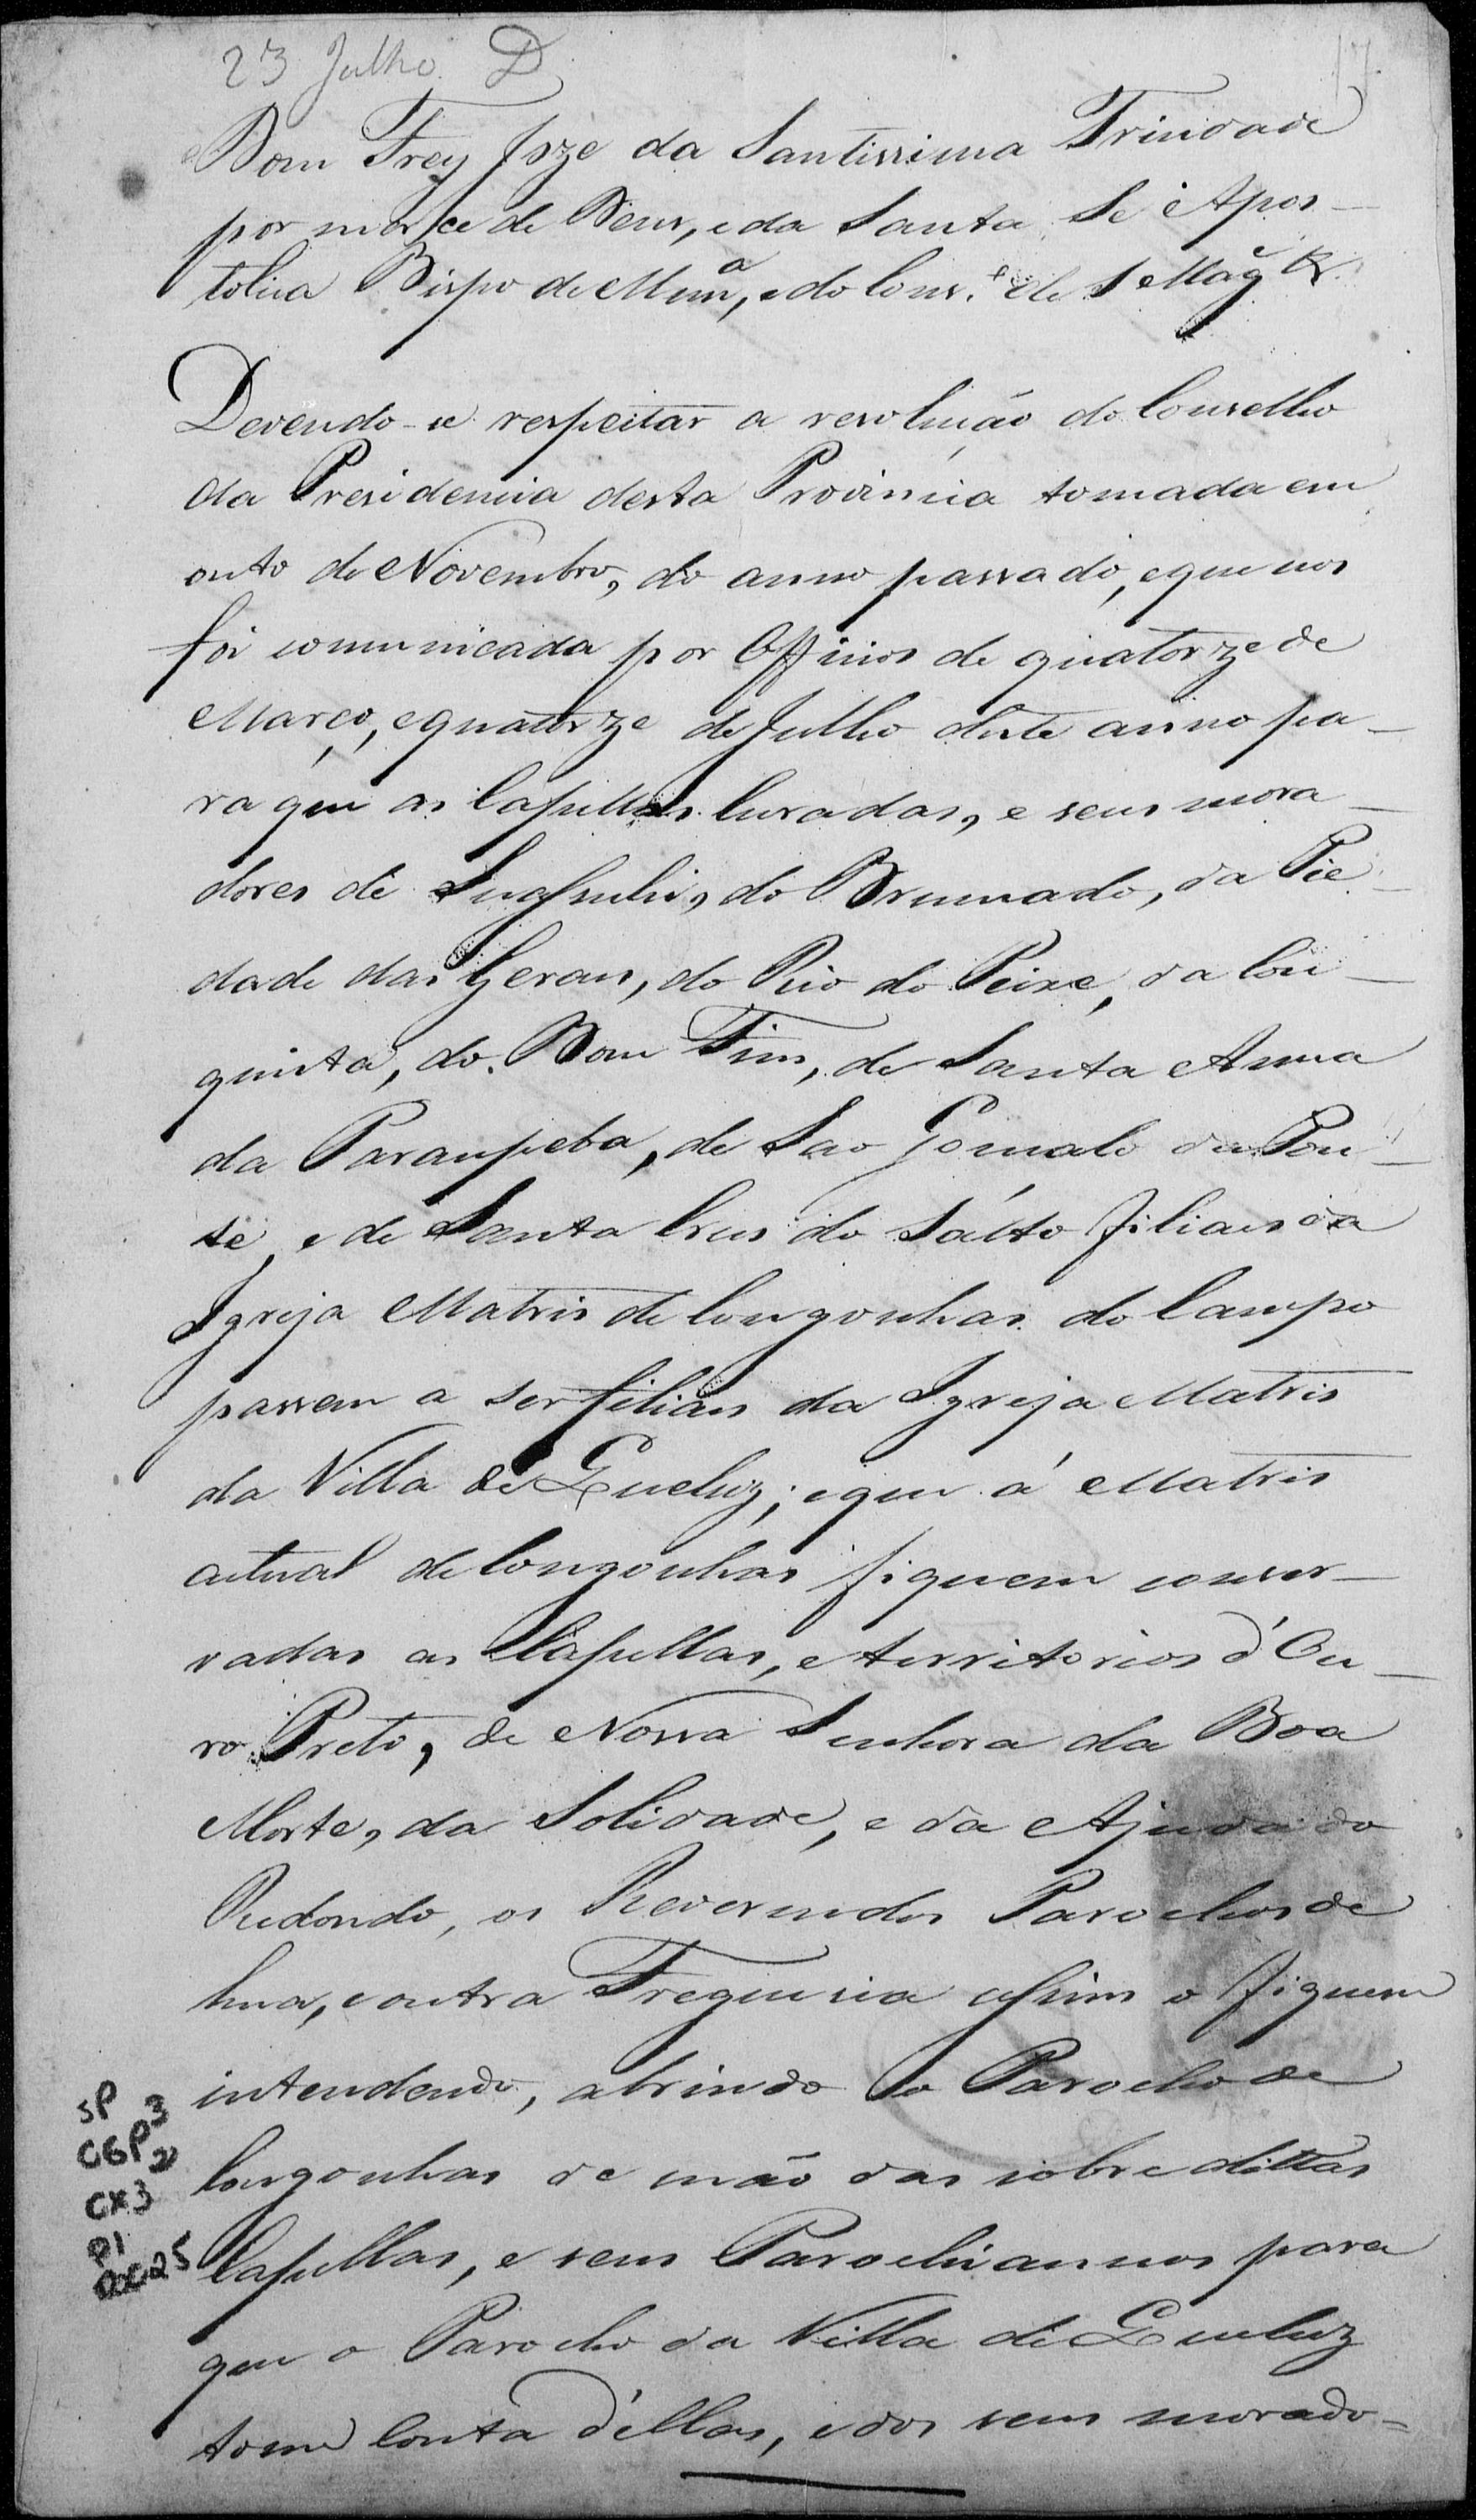 23 Julho D
17
Dom Frey Joze da Santissima Trindade
por merce de Deus, e da Santa Sé Apos-
tolica Bispo de Mna, e do Cons.º de S Mag &.
Devendo-se respeitar a resolução do Conselho
da Presidencia desta Provincia tomada em
outo de Novembro, do anno passado, e que nos
foi comunicada por Officios de quatorze de
Março, e quatorze de Julho deste anno pa-
ra que as Capellas Curadas, e seus mora-
dores de Suassuhi, do Brumado, da Pie-
dade das Geraes, do Rio do Peixe, da Con-
quista, do Bom Fim, de Santa Anna
da Paraupeba, de Sao Gonçalo da Pon-
te, e de Santa Crus do Salto filiaes da
Igreja Matris de Congonhas do Campo
passem a ser filiaes da Igreja Matris
da Villa de Queluz; e que á Matris
actual de Congonhas fiquem conser-
vadas as Capellas, e territorios d'Ou-
ro Preto, de Nossa Senhora da Boa
Morte, da Solidade, e da Ajuda do
Redondo, os Reverendos Parochos de
hua, e outra Freguesia assim o fiquem
intendendo, abrindo o Parocho de
Congonhas de mão das sobreditas
Capellas, e seus Parochiannos para
que o Parocho da Villa de Queluz
tome Conta d'ellas, e dos seus morado=
SP
CGP 3
CX3
P1
DOC25